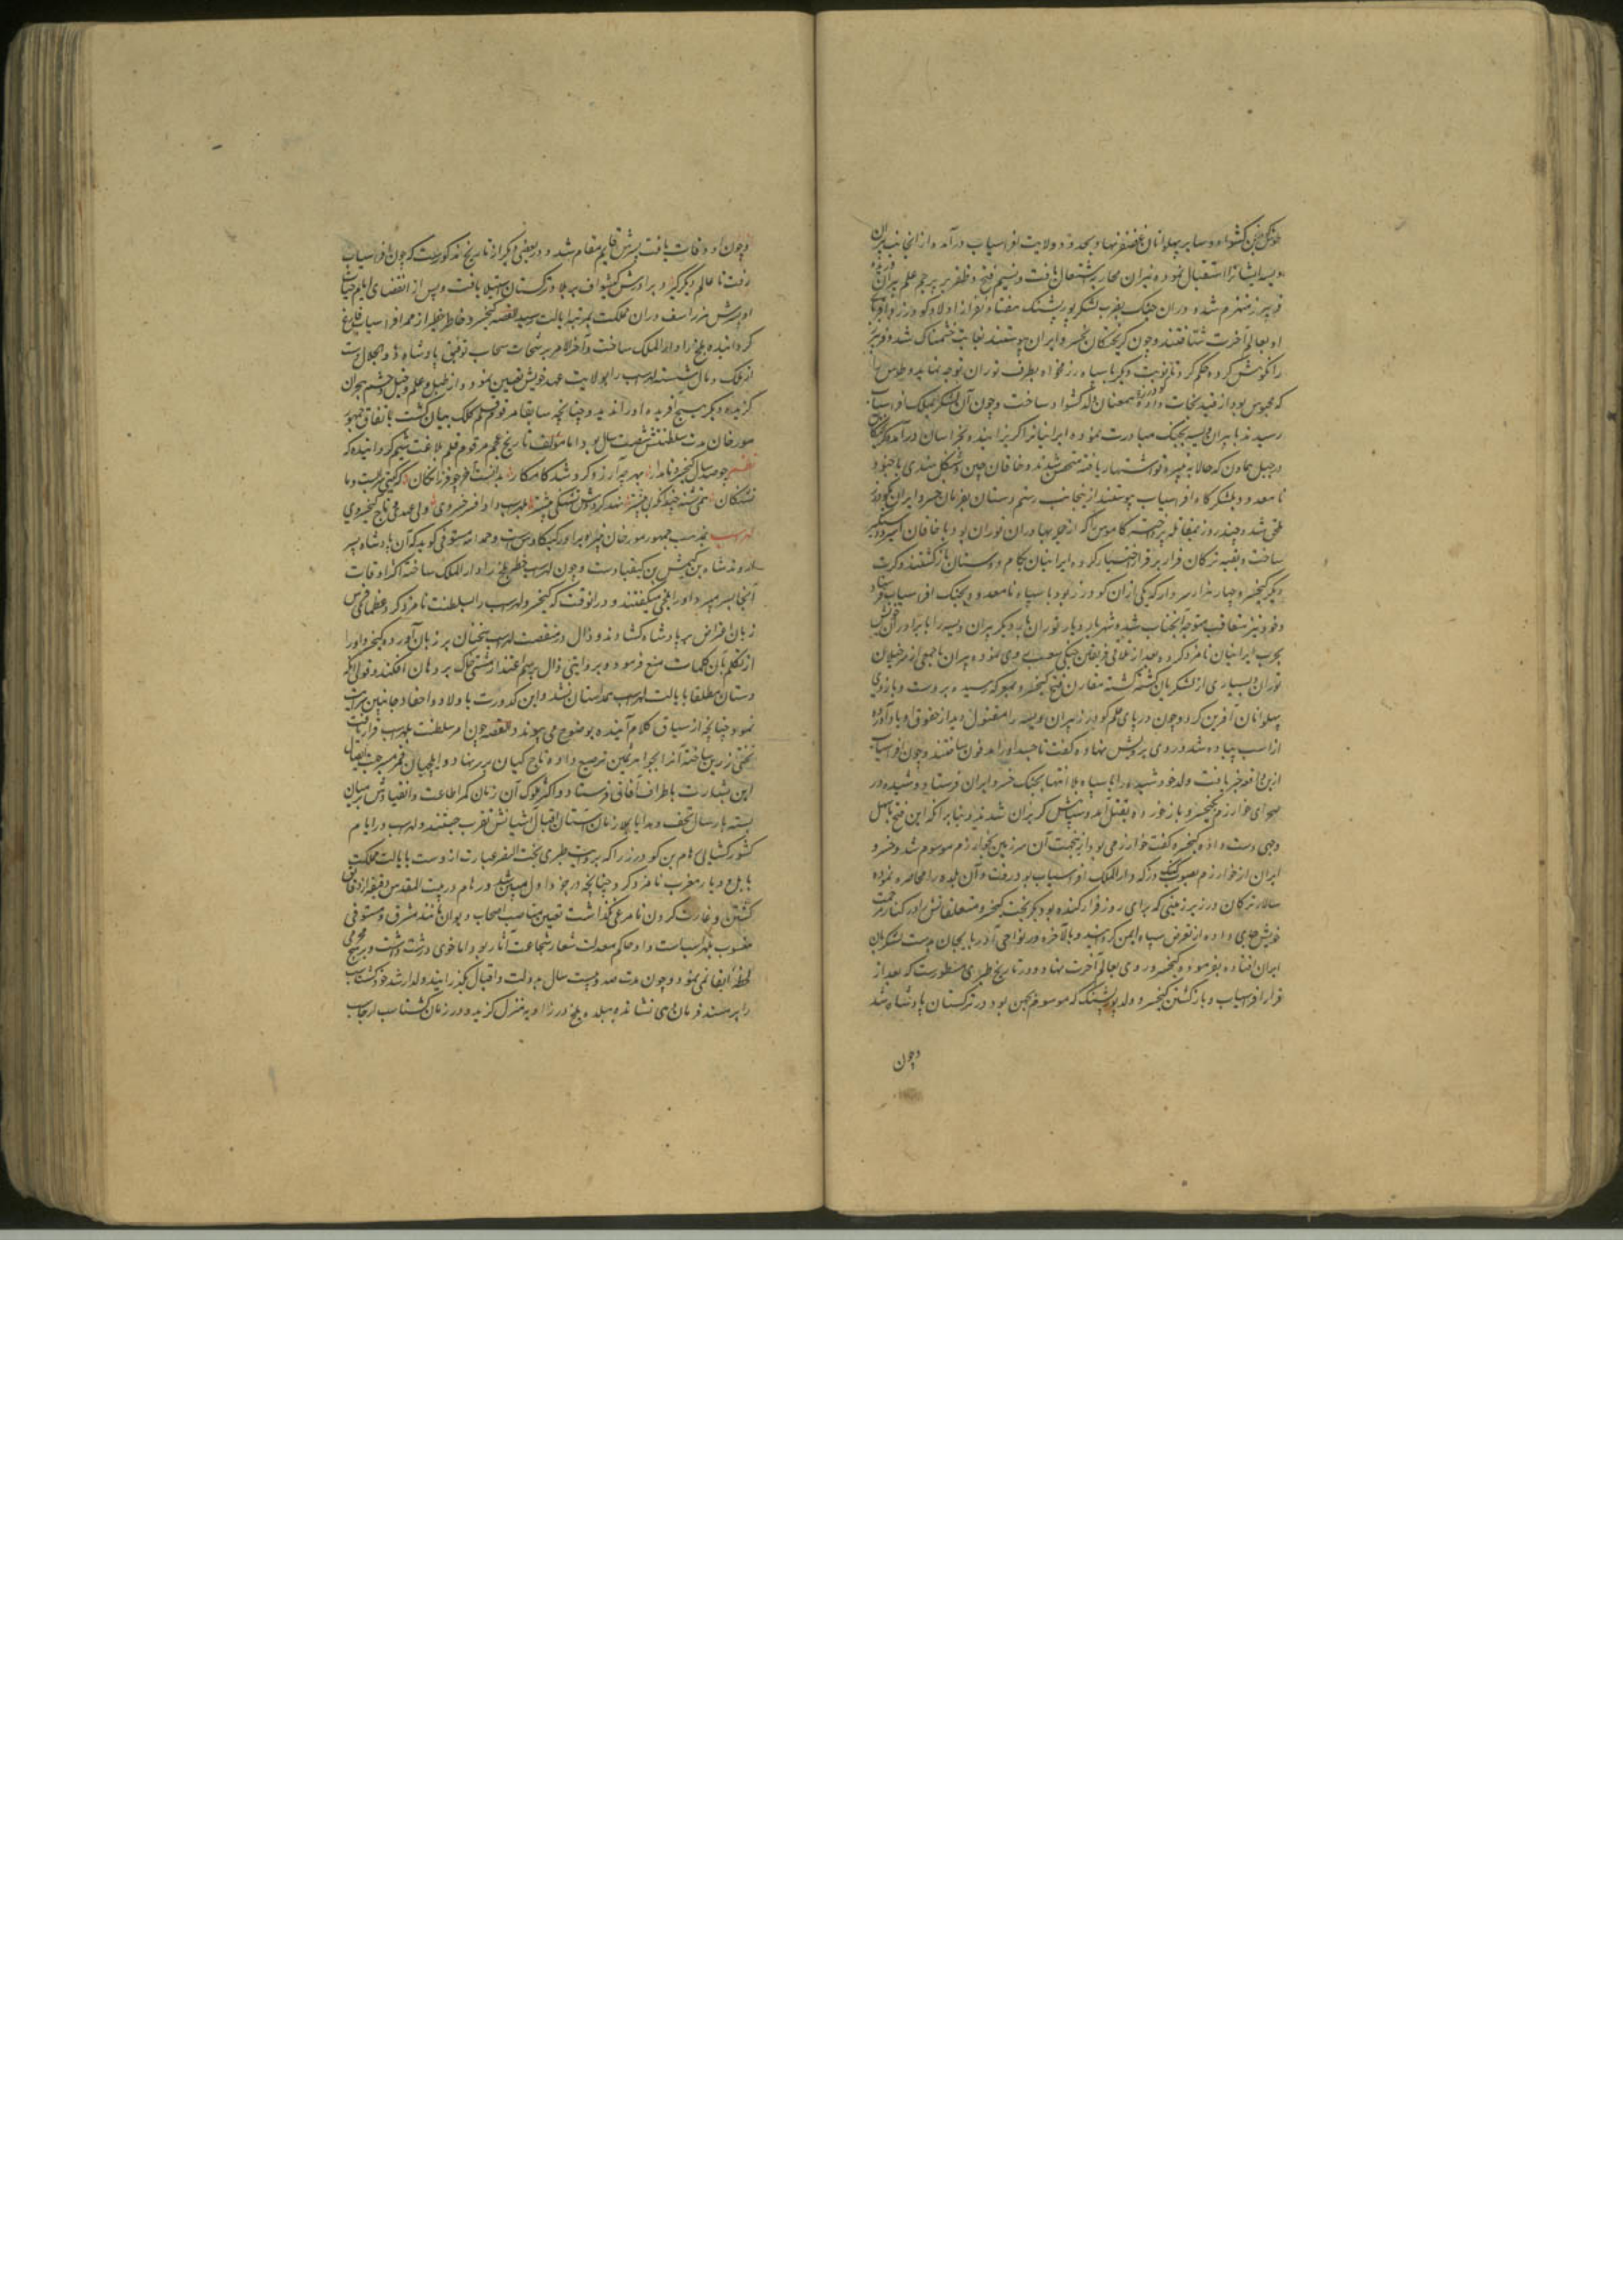 و سایر پهلوانان غضنفر نهاد بحدود ولایت افراسیاب درآمد و از انجانب پیران
ویسه ایشانرا استقبال نموده نیران محاربه اشتعال یافت و نسیم فتح و ظفر بر پرچم علم پیران
منهزم شد و دران جنک بضرب لشکر پور پشنک هفتاد نفر از اولاد کودرز
بعالم آخرت شتافتند و چون کریختکان بخسرو ایران پیوستند بغایت خشمناک شد
را نکوهش کرد و حکم کرد تا نوبت دیکر با سپاه رزمخواه بطرف توران توجه نماید و طوس را
که محبوس بود از قید نجات داد ولد کشواد ساخت و چون آن لشکر بملک افراسیاب
رسیدند با پیران ویسه بجنک مبادرت نموده ایرانیانرا کریزانیده بخراسان درآمد
در جبل هماون که حالا به اشتهار یافته متحصن شدند و خاقان چین و شنکل هندی با جنود
نامعدود بلشکرکاه افراسیاب پیوستند ازینجانب رستم دستان بفرمان خسرو ایران بکودرز
ملحق شد و چند روز بمقاتله پرداخت کاموس را که از جمله بهادران توران بود با خاقان اسیر و دستکیر
ساخت و بقیه ترکان فرار بر قرار اختیار کرده ایرانیان بکام دوستان بازکشتند و کرت
دیکر کیخسرو چهار هزار سردار که یکی ازان کودرز بود با سپاه نامعدود بجنک افراسیاب فرستاد
و خود نیز متعاقب متوجه آنجناب شد و شهریار دیار توران بار دیکر پیران ویسه را با برادران خویش
بحرب ایرانیان نامزد کرده بعد از تلاقی فریقین جنکی صعب روی نموده پیران با جمعی از مرخیلان
توران و بسیاری از لشکریان کشته کشته مقارن فتح کیخسرو بمعرکه رسیده بر دست و بازوی
پهلوانان آفرین کرد و چون در پای علم کودرز پیران ویسه را مقتول دید از حقوق او یاد آورده
از اسب پیاده شد و روی بر رویش نهاده کفت تا جسد او را مدفون ساختند و چون افراسیاب
ازین واقعه خبر یافت ولد خود شیده را با سپاه بلا انتها بجنک خسرو ایران فرستاد و شیده در
صحرای خوارزم بکیخسرو باز خورده بقتل آمد و سپاهش کریزان شدند و بنا بر آنکه این فتح باسهل
وجهی دست داد کیخسرو کفت خوارزمی بود ازینجهت آن سرزمین بخوارزم موسوم شد و خسرو
ایران از خوارزم بصوب کنک دژ که دارالملک افراسیاب بود رفته آن بلده را محاصره نموده
سالار ترکان در زیر زمینی که برای روز فرار کنده بود بکریخت کیخسرو متعلقانش را در کنار مرحمت
خویش جای داده از تعرض سپاه ایمن کردانید و بالآخره در نواحی آذربایجان بدست لشکریان
ایران افتاده بفرموده کیخسرو روی بعالم آخرت نهاد و در تاریخ طبری مسطورست که بعد از
فرار افراسیاب و بازکشتن کیخسرو ولد پور پشنک که موسوم بجهن بود در ترکستان پادشاه شد
وچون
وچون او وفات یافت پسرش قایم مقام شد و در بعضی دیکر از تاریخ مذکورست که چون افراسیاب
رفت تا عالم دیکر کیرد برادرش بر بلاد ترکستان استیلا یافت و پس از انقضای ایام حیات
او پسرش دران مملکت بمرتبه ایالت رسید القصه کیخسرو خاطر خطیر از مهم افراسیاب فارغ
کردانیده بلخ را دارالملک ساخت و آخر الامر برشحات سحاب توفیق پادشاه ذو الجلال دست
از ملک و مال شسته لهراسب را بولایت عهد خویش تعیین نمود و از طبل و علم و خیل و حشم هجران
کزیده دیکر هیچ آفریده او را ندید و چنانچه سابقا مرقوم قلم کلک بیان کشت باتفاق جمهور
مورخان مدت سلطنتش شصت سال بود اما مؤلف تاریخ معجم مرقوم قلم بلاغت شیم کردانیده که
نظم چو صد سال کیخسرو نامدار بهر چه آرزو کرد شد کامکار بدانست کیتی
لهراسب بمذهب جمهور مورخان نبیره برادر کیکاوس است و حمد الله مستوفی کوید که آن پادشاه پسر
اروند شاه بن کیپشین بن کیقبادست و چون لهراسب خطه بلخ را دارالملک ساخته اکثر اوقات
آنجا بسر میبرد او را بلخی میکفتند و درانوقت که کیخسرو لهراسب را بسلطنت نامزد کرد عظماء فرس
زبان اعتراض بر پادشاه کشادند و زال در منقصت لهراسب سخنان بر زبان آورده کیخسرو او را
از تکلم بآن کلمات منع فرمود و بروایتی زال برسم اعتذار مشتی خاک بر دهان افکند و قولی آنکه
دستان مطلقا بایالت لهراسب همداستان نشد و این کدورت باولاد و احفاد جانبین سرایت
نمود چنانچه از سیاق کلام آینده بوضوح می پیوندد القصه چون امر سلطنت بلهراسب قرار یافت
تختی زرین ساخته آنرا بجواهر ثمین ترصیع داده تاج کیان بر سر نهاد و ایلچیان جهت ایصال
این بشارت باطراف آفاق فرستاد و اکثر ملوک آن زمان کمر اطاعت و انقیادش بر میان
بسته بارسال تحف و هدایا بملازمان آستان اقبال آشیانش تقرب جستند و لهراسب در ایام
کشورکشایی رهام بن کودرز را که بروایت طبری بخت النصر عبارت ازوست بایالت مملکت
بابل و دیار مغرب نامزد کرد و چنانچه در جزو اول مبین شد رهام در بیت المقدس دقیقه از دقایق
کشتن و غارت کردن نامرعی نکذاشت تعیین مناصب اصحاب دیوان مانند مشرف و مستوفی
منسوب بلهراسب است و او حاکم معدلت شعار شجاعت آثار بود اما خوی درشت داشت و بر هیچ مجرمی
لحظه ابقا نمی نمود و چون مدت صد و بیست سال بدولت و اقبال بکذرانید ولد ارشد خود کشتاسب
را بر مسند فرماندهی نشانده ببلده بلخ در زاویه منزل کزید و در زمان کشتاسب ارجاسب